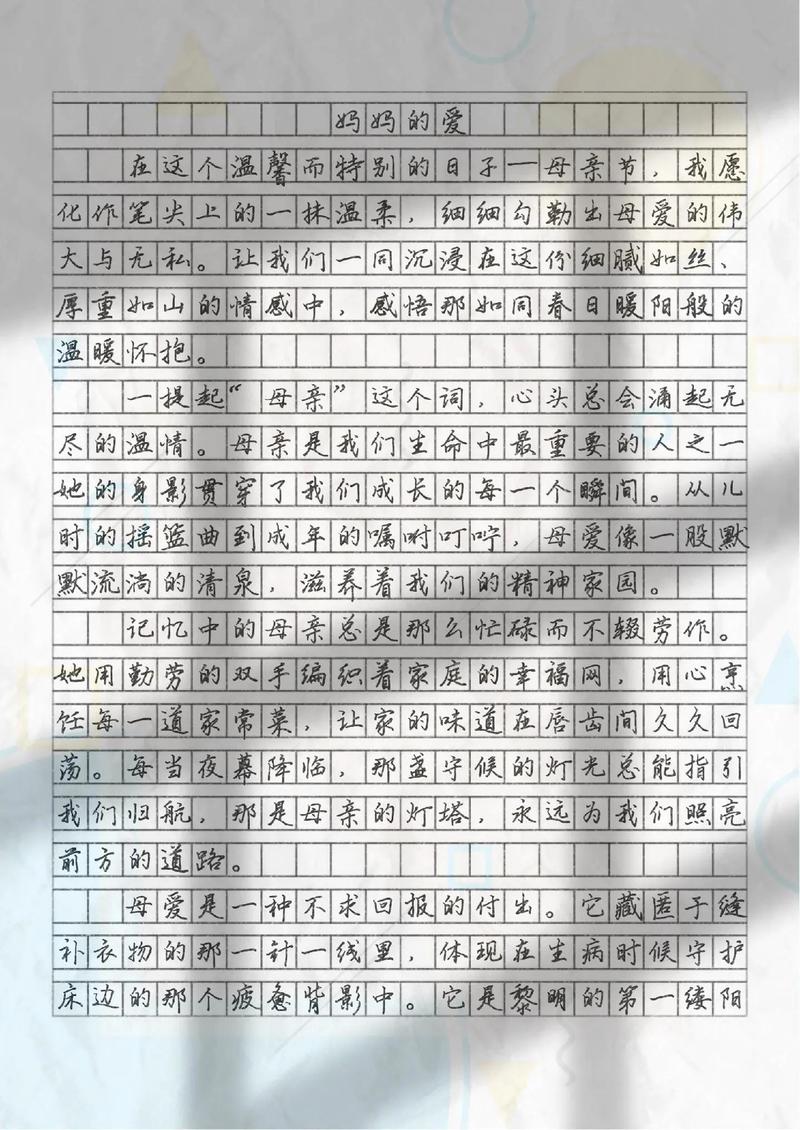 妈妈的爱
在这个温馨而特别的日子一母亲节，我愿
化作笔尖上的一抹温柔，细细勾勒出母爱的伟
大与无私。让我们一同沉浸在这份细腻如丝、
厚重如山的情感中，感悟那如同春日暖阳般的
温暖怀抱。
一提起“母亲”这个词，心头总会涌起无
尽的温情。母亲是我们生命中最重要的人之一
她的身影贯穿了我们成长的每一个瞬间。从儿
时的摇篮曲到成年的嘱咐叮咛，母爱像一股默
默流淌的清泉，滋养着我们的精神家园。
记忆中的母亲总是那么忙碌而不辍劳作。
她用勤劳的双手编织着家庭的幸福网，用心烹
饪每一道家常菜，让家的味道在唇齿间久久回
荡。每当夜幕降临，那盏守候的灯光总能指引
我们归航，那是母亲的灯塔，永远为我们照亮
前方的道路。
母爱是一种不求回报的付出。它藏匿于缝
补衣物的那一针一线里，体现在生病时候守护
床边的那个疲惫背影中。它是黎明的第一缕阳